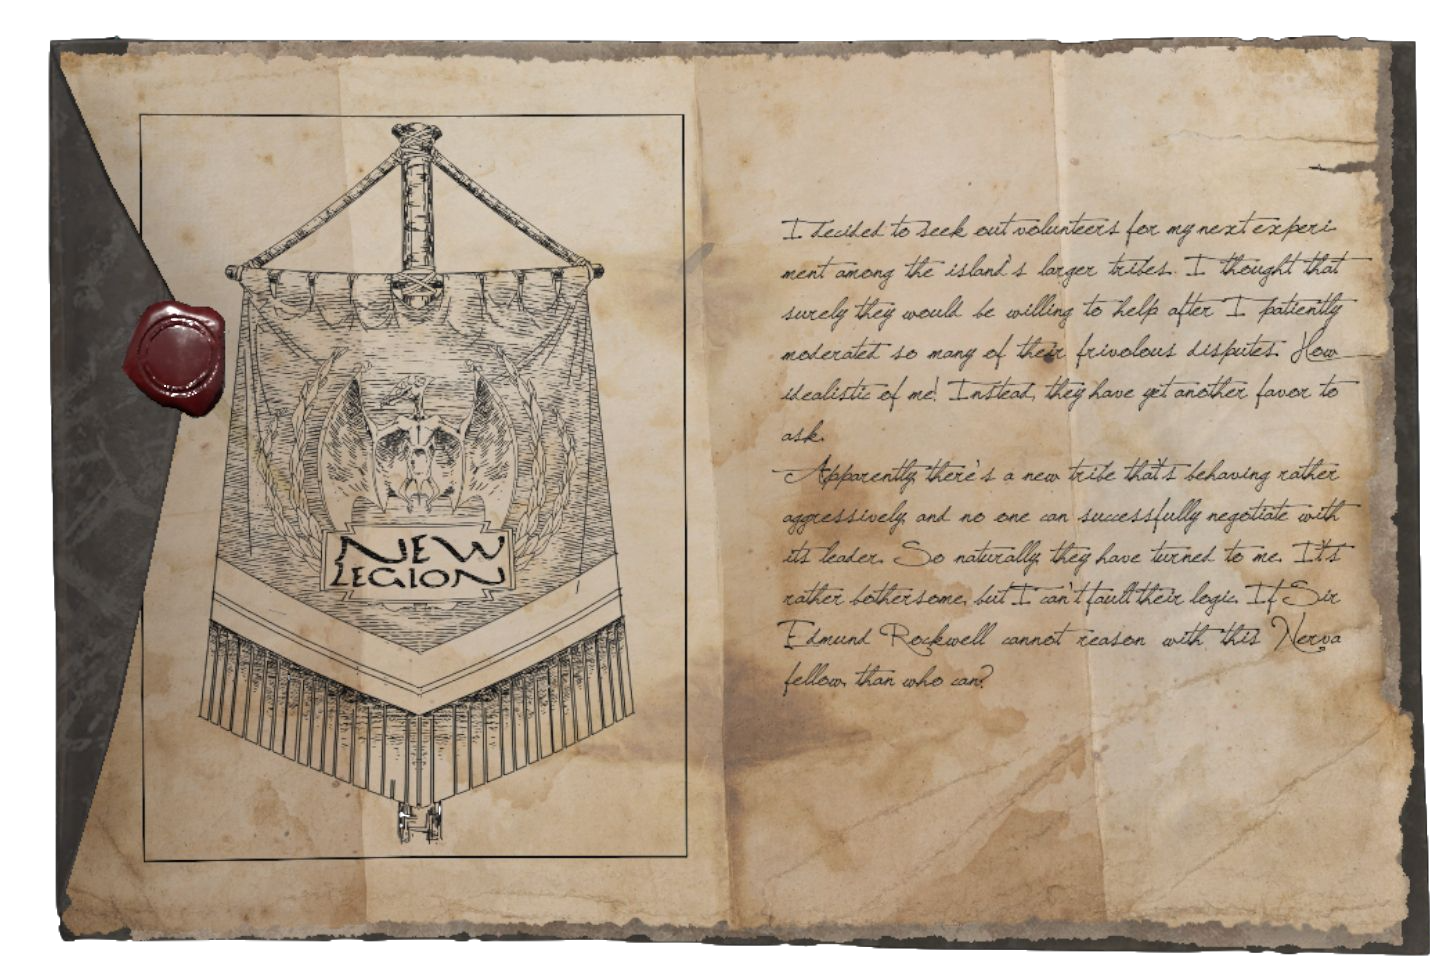 NEW
LEGION
I decided to seek out volunteers for my next experi-
ment among the island's larger tribes. I thought that
surely they would be willing to help after I patiently
moderated so many of their frivolous disputes. How
idealistic of me! Instead, they have yet another favor to
ask.
Apparently, there's a new tribe that's behaving rather
aggressively, and no one can successfully negotiate with
its leader. So naturally, they have turned to me. It's
rather bothersome, but I can't fault their logic. If Sir
Edmund Rockwell cannot reason with this Nerva
fellow, than who can?